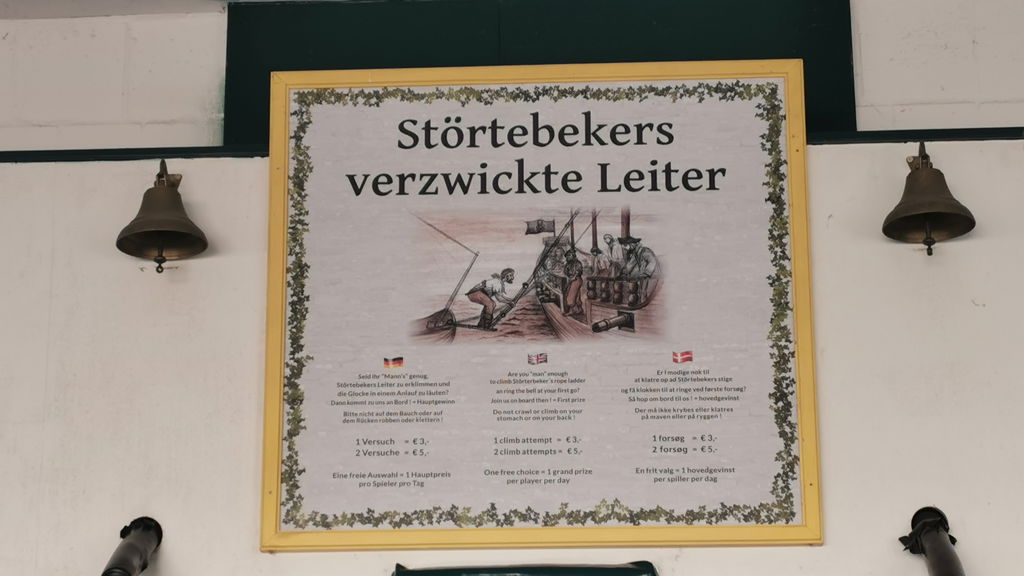 Störtebekers
verzwickte Leiter
Seid ihr "Mann's" genug,
Störtebekers Leiter zu erklimmen und
die Glocke in einem Anlauf zu läuten?
Dann kommt zu uns an Bord ! = Hauptgewinn
Bitte nicht auf dem Bauch oder auf
dem Rücken robben oder klettern !
1 Versuch = € 3,-
2 Versuche = € 5,-
Eine freie Auswahl = 1 Hauptpreis
pro Spieler pro Tag
Are you "man" enough
to climb Störterbeker's rope ladder
an ring the bell at your first go?
Join us on board then ! = First prize
Do not crawl or climb on your
stomach or on your back !
1 climb attempt = € 3,-
2 climb attempts = € 5,-
One free choice = 1 grand prize
per player per day
Er I modige nok til
at klatre op ad Störtebekers stige
og få klokken til at ringe ved første forsøg?
Så hop om bord til os ! = hovedgevinst
Der må ikke krybes eller klatres
på maven eller på ryggen !
1 forsøg = € 3,-
2 forsøg = € 5,-
En frit valg = 1 hovedgevinst
per spiller per dag